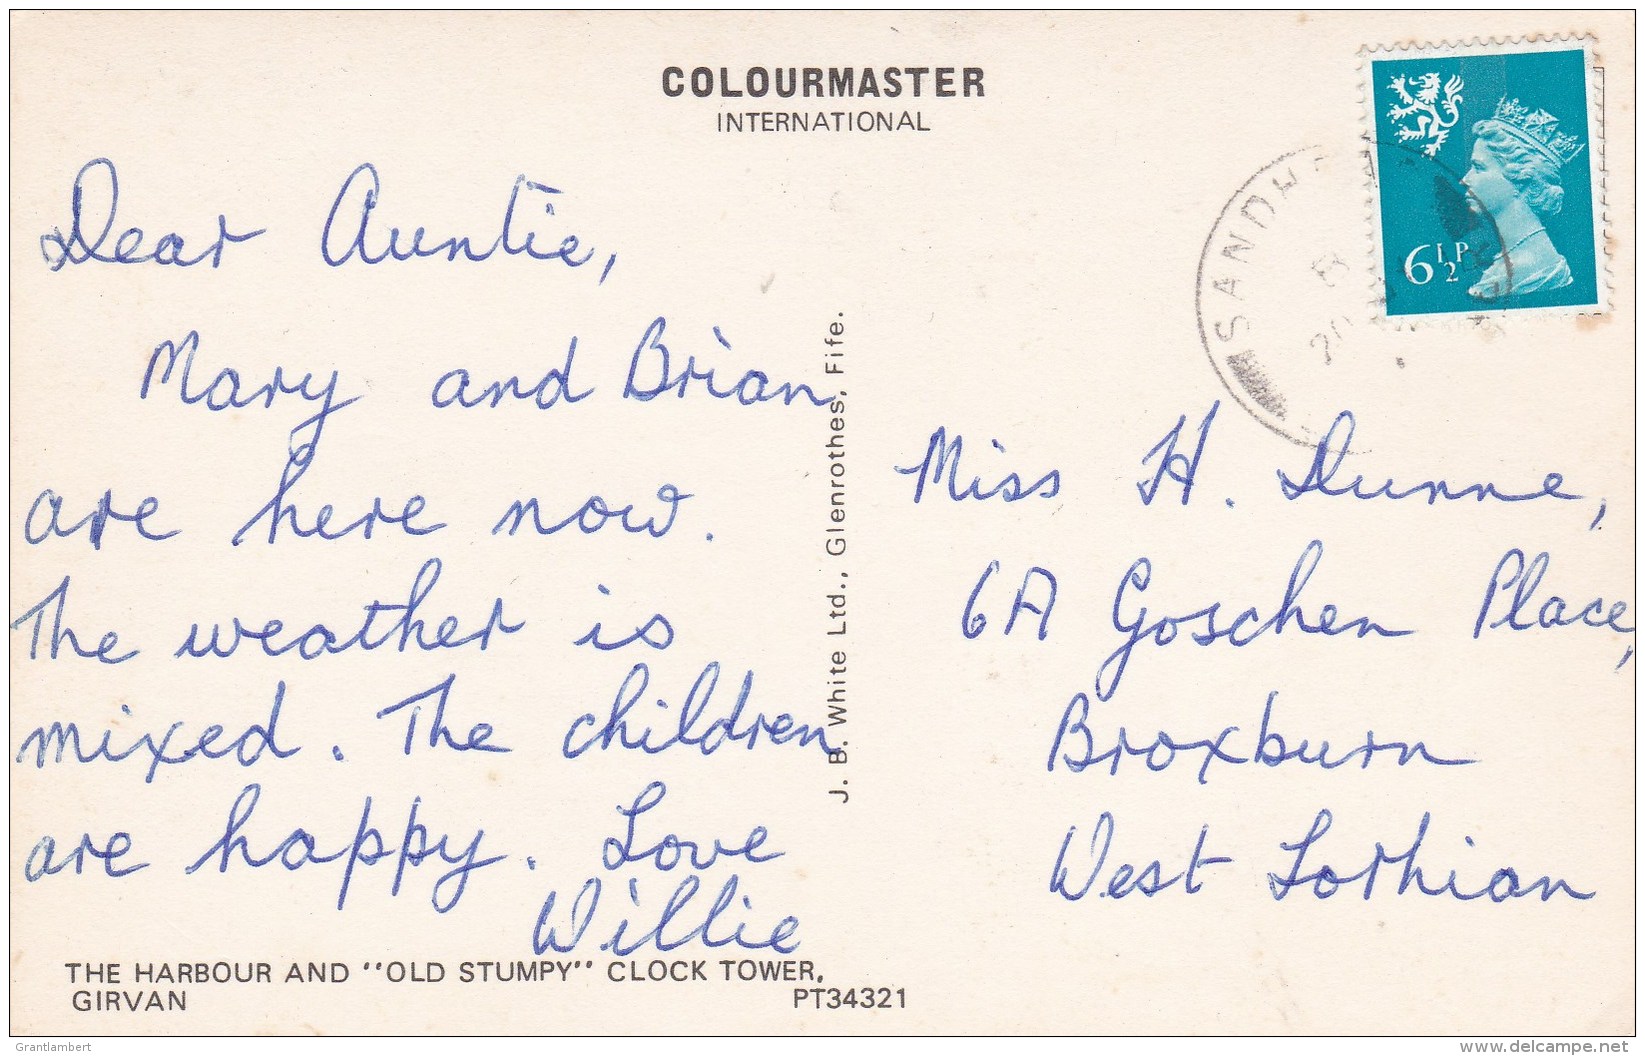 COLOURMASTER
INTERNATIONAL
Dear Auntie,
Mary and Brian
are here now.
The weather is
mixed. The children
are happy. Love
Willie
THE HARBOUR AND "OLD STUMPY" CLOCK TOWER,
GIRVAN
PT34321
J. B. White Ltd., Glenrothes, Fife.
6½P
Miss H. Dunne,
6A Goschen Place,
Broxburn
West Lothian
Grantlambert
delcampe.net